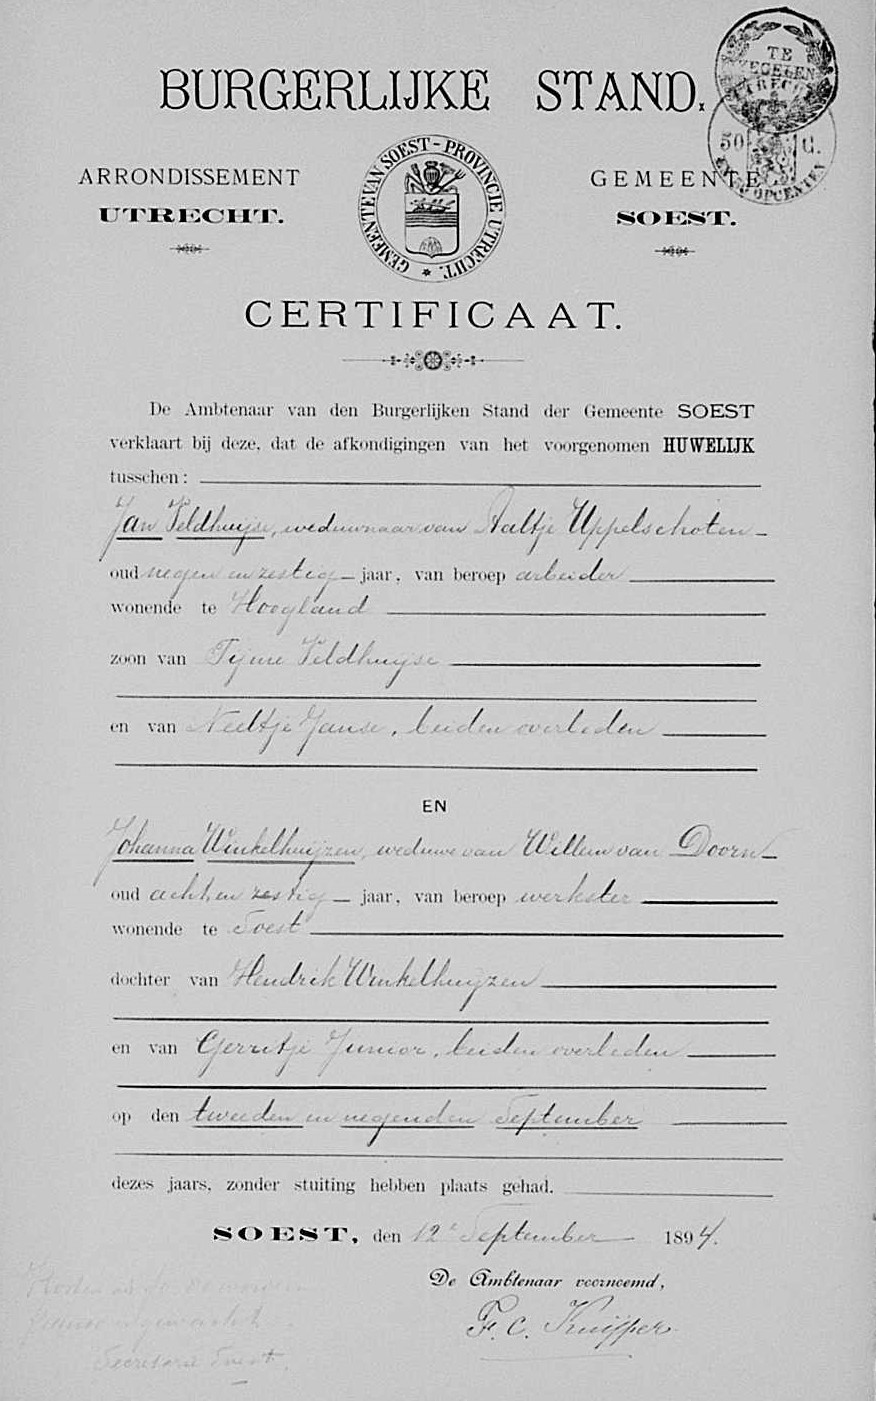 TE
ZEGELEN
UTRECHT
50 C.
EN 38 OPCENTEN
BURGERLIJKE STAND.
ARRONDISSEMENT
UTRECHT.
GEMEENTE VAN SOEST - PROVINCIE UTRECHT.
GEMEENTE
SOEST.
CERTIFICAAT.
De Ambtenaar van den Burgerlijken Stand der Gemeente SOEST
verklaart bij deze, dat de afkondigingen van het voorgenomen HUWELIJK
tusschen:
Jan Veldhuijse, weduwnaar van Aaltje Uppelschoten
oud negen en zestig jaar, van beroep arbeider
wonende te Hoogland
zoon van Tijme Veldhuijse
en van Neeltje Janse, beiden overleden
EN
Johanna Winkelhuijzen, weduwe van Willem van Doorn
oud acht en zestig jaar, van beroep werkster
wonende te Soest
dochter van Hendrik Winkelhuijzen
en van Gerritje Junior, beiden overleden
op den tweeden en negenden September
dezes jaars, zonder stuiting hebben plaats gehad.
SOEST, den 12e September 1894.
De Ambtenaar voornoemd,
F. C. Kuijper
Secretarie Soest.